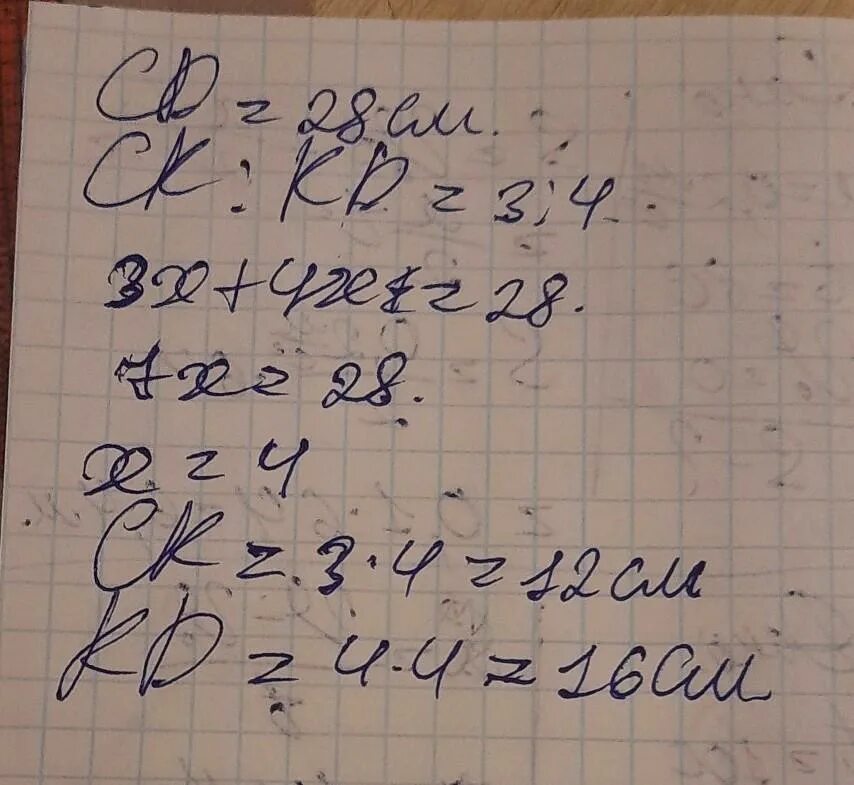 CD = 28 см.
CK : KD = 3 : 4.
3x + 4x = 28.
7x = 28.
x = 4
CK = 3 · 4 = 12 см
KD = 4 · 4 = 16 см